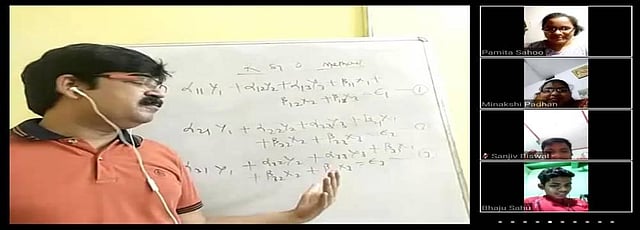 Method
α11 y1 + α12 y2 + α13 y3 + β11 x1 +
β12 x2 + β13 x3 = ε1 — (1)
α21 y1 + α22 y2 + α23 y3 + β21 x1
+ β22 x2 + β23 x3 = ε2 — (2)
α31 y1 + α32 y2 + α33 y3 + β31 x1
+ β32 x2 + β33 x3 = ε3 — (3)
Pamita Sahoo
Minakshi Padhan
Sanjiv Biswal
Bhaju Sahu